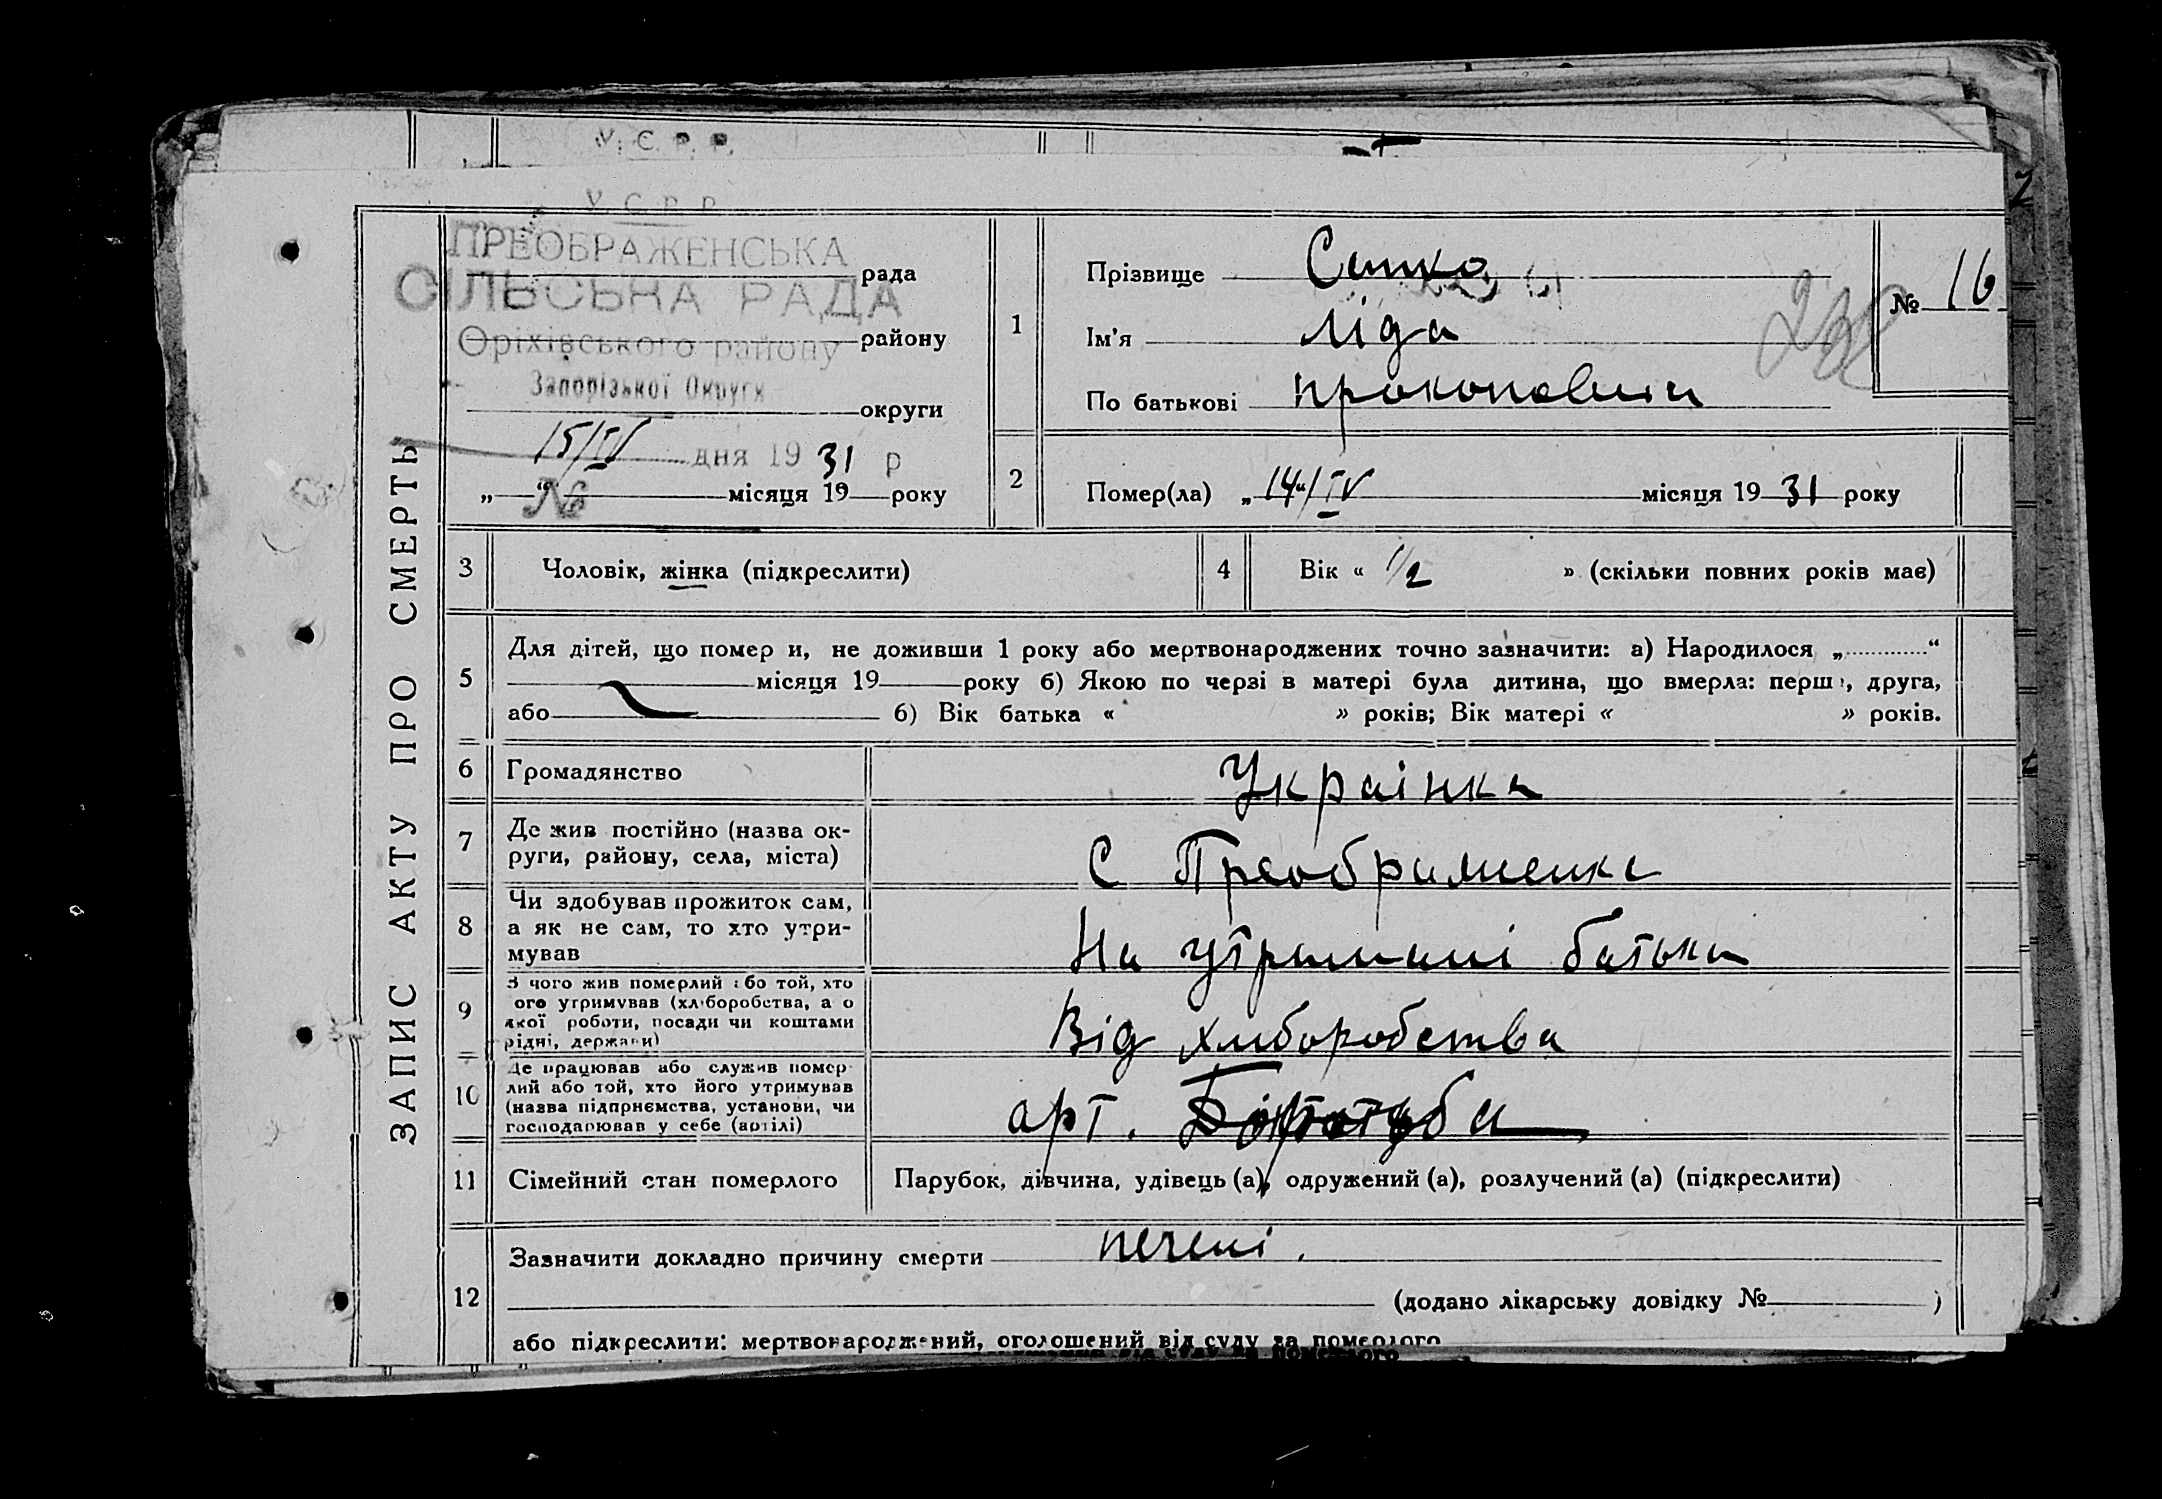 У. С. Р. Р.
У. С. Р. Р.
ЗАПИС АКТУ ПРО СМЕРТЬ
ПРЕОБРАЖЕНСЬКА
рада
СІЛЬСЬКА РАДА
Оріхівського району району
Запорізької Округи
округи
15/IV дня 1931 р
№
„ “ місяця 19 року
1
Прізвище
Ім'я Ліда
По батькові
№ 16
2
Помер(ла) „14“/IV місяця 1931 року
3
Чоловік, жінка (підкреслити)
4
Вік « 1/2 » (скільки повних років має)
5
Для дітей, що помер и, не доживши 1 року або мертвонароджених точно зазначити: а) Народилося „ “
місяця 19 року б) Якою по черзі в матері була дитина, що вмерла: перш , друга,
або б) Вік батька « » років; Вік матері « » років.
6
Громадянство
Українка
7
Де жив постійно (назва ок-
руги, району, села, міста)
С Преображенка
8
Чи здобував прожиток сам,
а як не сам, то хто утри-
мував
На утриманні батька
9
З чого жив померлий або той, хто
ого утримував (хліборобства, а о
якої роботи, посади чи коштами
рідні, держави)
Від хліборобства
10
Де працював або служив помер-
лий або той, хто його утримував
(назва підприємства, установи, чи
господарював у себе (артілі)
арт.
11
Сімейний стан померлого
Парубок, дівчина, удівець (а), одружений (а), розлучений (а) (підкреслити)
12
Зазначити докладно причину смерти печені.
(додано лікарську довідку № )
або підкреслити: мертвонароджений, оголошений від суду за померлого